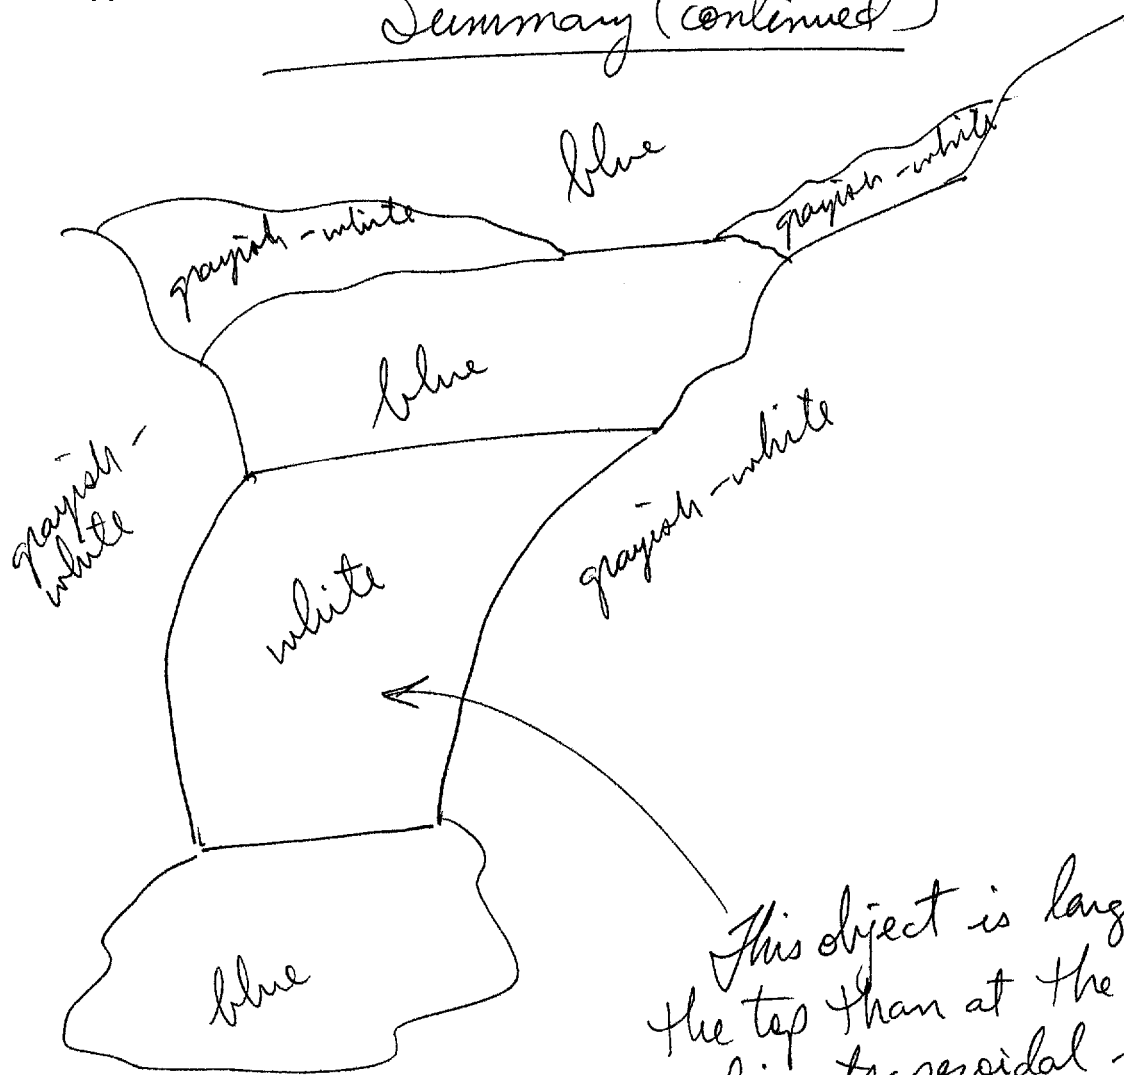 Summary (continued)
blue
grayish-white
grayish-white
blue
grayish-
white
grayish-white
white
blue
This object is
the top than at the